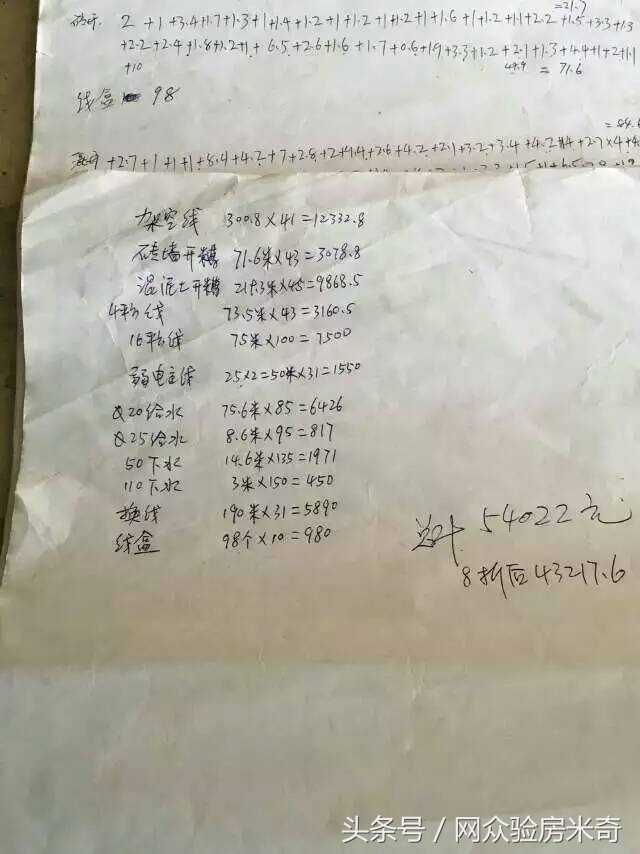 =21.7
2+1+3.4+1.7+1.3+1+1.4+1.2+1+1.2+1+1.2+1+1.6+1+1.2+1.1+2.2+1.5+3.3+1.3
+2.2+2.4+1.8+1.2+1+6.5+2.6+1.6+1.7+0.6+1.9+3.3+1.2+2.1+1.3+4.4+1+2+1.1
+10 49.9 = 71.6
线盒 98
+2.7+1+1+1+8.4+4.2+7+2.8+2+4.4+2.6+4.2+2.1+3.2+3.4+4.2
架空线 300.8×41=12332.8
砖墙开糟 71.6米×43=3078.8
混泥土开糟 219.3米×45=9868.5
4平方线 73.5米×43=3160.5
16平方线 75米×100=7500
弱电主线 25×2=50米×31=1550
Q20给水 75.6米×85=6426
Q25给水 8.6米×95=817
50下水 14.6米×135=1971
110下水 3米×150=450
换线 190米×31=5890
线盒 98个×10=980
总计 54022元
8折后43217.6
头条号／网众验房米奇